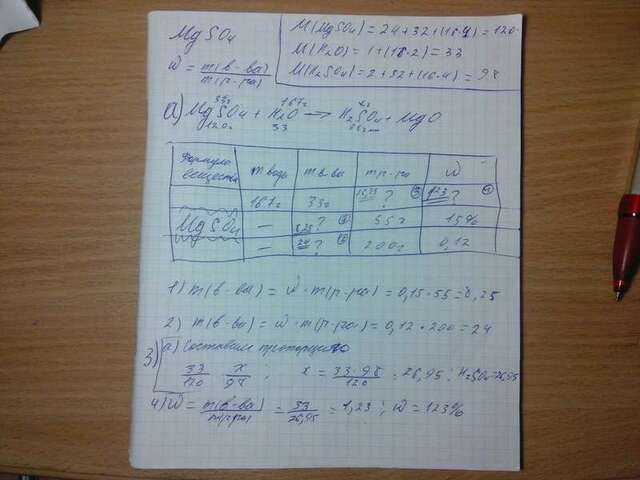 MgSO₄
ω = m(в-ва)/m(р-ра)
M(MgSO₄) = 24+32+(16·4) = 120
M(H₂O) = 1+(16·2) = 33
M(H₂SO₄) = 2+32+(16·4) = 98
33г 167г x г
а) MgSO₄ + H₂O → H₂SO₄ + MgO
120г 33
Формула вещества | m воды | m в-ва | m р-ра | ω
167г | 33г | ? ③ | 123 ? ④
MgSO₄ | — | 8,25 ? ① | 55г | 15%
— | 24 ? ② | 200г | 0,12
1) m(в-ва) = ω · m(р-ра) = 0,15 · 55 = 8,25
2) m(в-ва) = ω · m(р-ра) = 0,12 · 200 = 24
3) а) Составим пропорцию
33/120 x/98 ; x = 33·98/120 = 26,95 ; H₂SO₄=26,95
4) ω = m(в-ва)/m(р-ра) = 33/26,95 = 1,23 ; ω = 123%